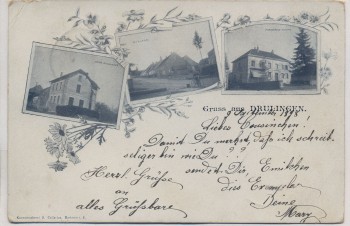 Gruss aus DRULINGEN.
9 September 1898
Liebes Cousinchen!
Damit Du merkst, daß ich schreib-
seliger bin wie Du???
sendet Dir, Emilchen
Herzl. Grüße das Exemplar
an Deine
alles Grüßbare Mary